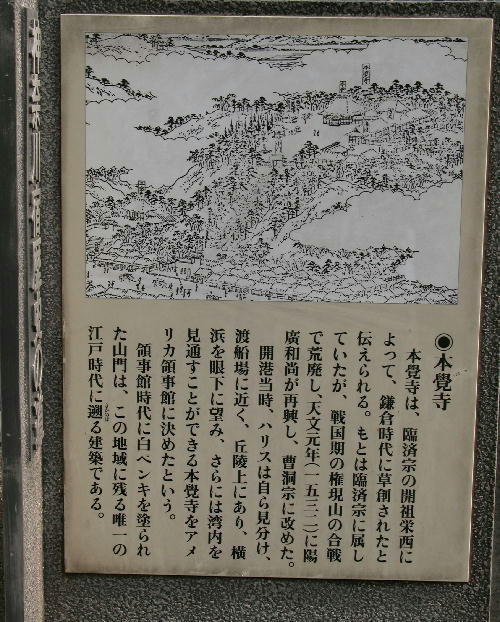 ◉本覺寺
本覺寺は、臨済宗の開祖栄西に
よって、鎌倉時代に草創されたと
伝えられる。もとは臨済宗に属し
ていたが、戦国期の権現山の合戦
で荒廃し、天文元年(一五三二)に陽
廣和尚が再興し、曹洞宗に改めた。
開港当時、ハリスは自ら見分け、
渡船場に近く、丘陵上にあり、横
浜を眼下に望み、さらには湾内を
見通すことができる本覺寺をアメ
リカ領事館に決めたという。
領事館時代に白ペンキを塗られ
た山門は、この地域に残る唯一の
江戸時代に遡る建築である。